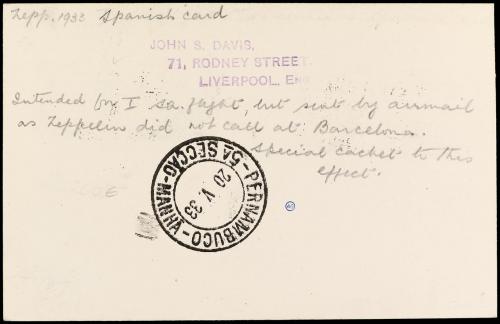 Zepp. 1933 Spanish card
JOHN S. DAVIS,
71, RODNEY STREET.
LIVERPOOL, ENG
Intended for I sa. flight, but sent by airmail
as Zeppelin did not call at Barcelona.
Special cachet to this
effect.
PERNAMBUCO - 5A SECÇÃO - MANHÃ
20 V. 33